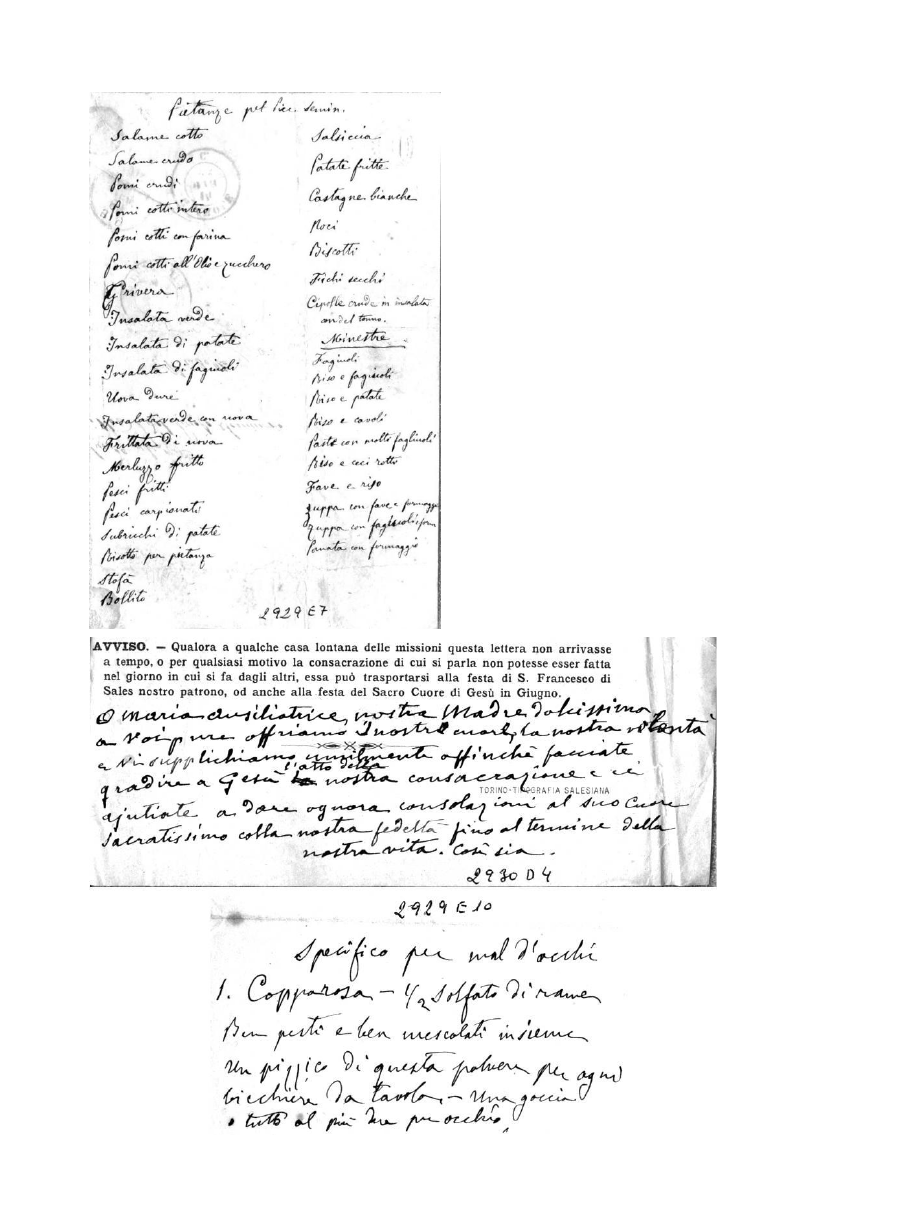 Pietanze pel Picc. semin.
Salame cotto
Salame crudo
Pomi crudi
Pomi cotti intero
Pomi cotti con farina
Pomi cotti all'Olio e zucchero
Grivera
Insalata verde
Insalata di patate
Insalata di fagiuoli
Uova dure
Insalata verde con uova
Frittata di uova
Merluzzo fritto
Pesci fritti
Pesci carpionati
Subricchi di patate
Risotto per pietanza
Stofà
Bollito
Salsiccia
Patate fritte
Castagne bianche
Noci
Biscotti
Fichi secchi
Cipolle crude in insalata
con del tonno.
Minestre
Fagiuoli
Riso e fagiuoli
Riso e patate
Riso e cavoli
Paste con molto fagliuoli
Riso e ceci rotto
Fave e riso
Zuppa con fave e formaggi
Zuppa con fagliuoli e form
Panata con formaggio
2929 E7
AVVISO. — Qualora a qualche casa lontana delle missioni questa lettera non arrivasse
a tempo, o per qualsiasi motivo la consacrazione di cui si parla non potesse esser fatta
nel giorno in cui si fa dagli altri, essa può trasportarsi alla festa di S. Francesco di
Sales nostro patrono, od anche alla festa del Sacro Cuore di Gesù in Giugno.
O Maria Ausiliatrice, nostra Madre dolcissima
a Voi pure offriamo i nostri cuori, la nostra volontà
e Vi supplichiamo umilmente affinchè facciate
l'atto della
gradire a Gesù nostra consacrazione e ci
TORINO-TIPOGRAFIA SALESIANA
ajutiate a dare ognora consolazioni al suo Cuore
Sacratissimo colla nostra fedeltà fino al termine della
nostra vita. Così sia.
2930 D4
2929 E 10
Specifico per mal d'occhi
1. Copparosa — 1/2 Solfato di rame
Ben pesti e ben mescolati insieme
Un pizzico di questa polvere per ogni
bicchiere da tavola, — Una goccia
o tutto al più due per occhio.